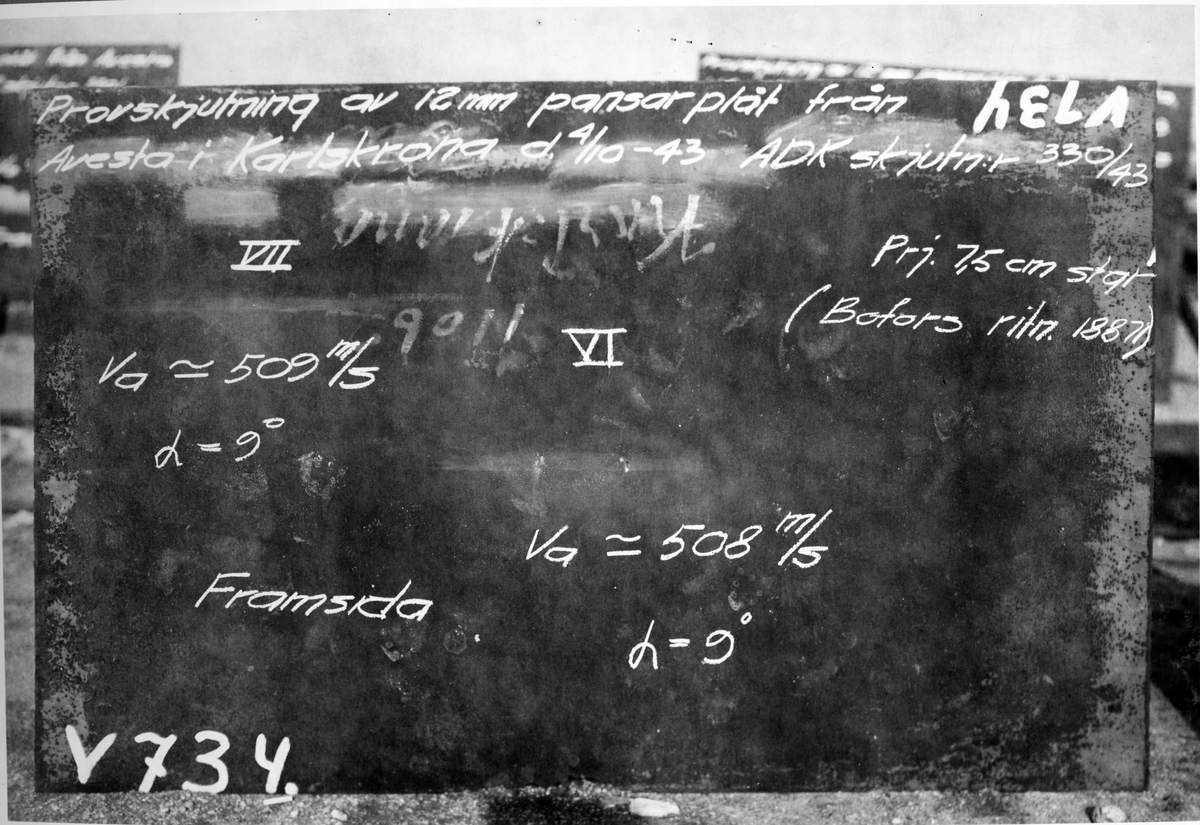 Provskjutning av 12 mm pansarplåt från
V734
Avesta i Karlskrona d. 4/10-43 ADK skjutn:r 330/43
VII
Prj. 7,5 cm stgr
(Bofors ritn. 18871)
VI
Va ≃ 509 m/s
α = 9°
Va ≃ 508 m/s
Framsida
α = 9°
V734.